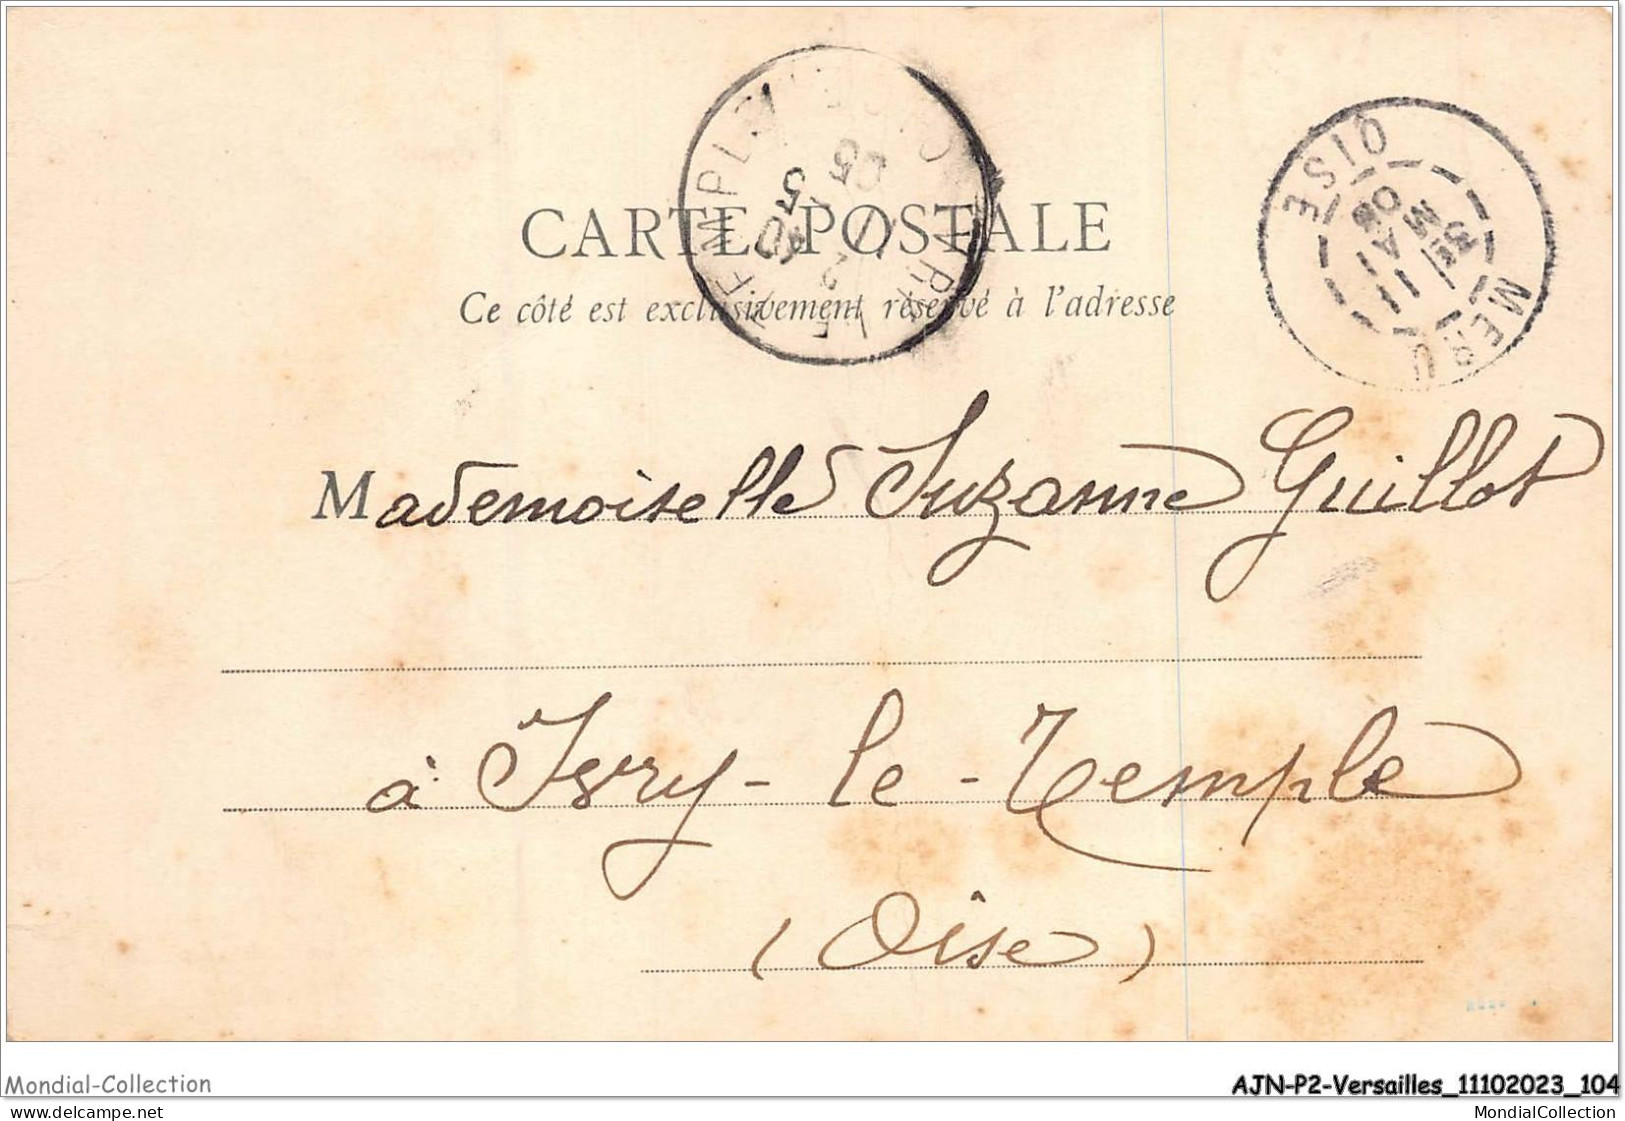 CARTE POSTALE
Ce côté est exclusivement réservé à l'adresse
MERU
OISE
3E
11
MAI
Mademoiselle Suzanne Guillot
à Ivry-le-Temple
(Oise)
Mondial-Collection
AJN-P2-Versailles_11102023_104
delcampe.net
MondialCollection